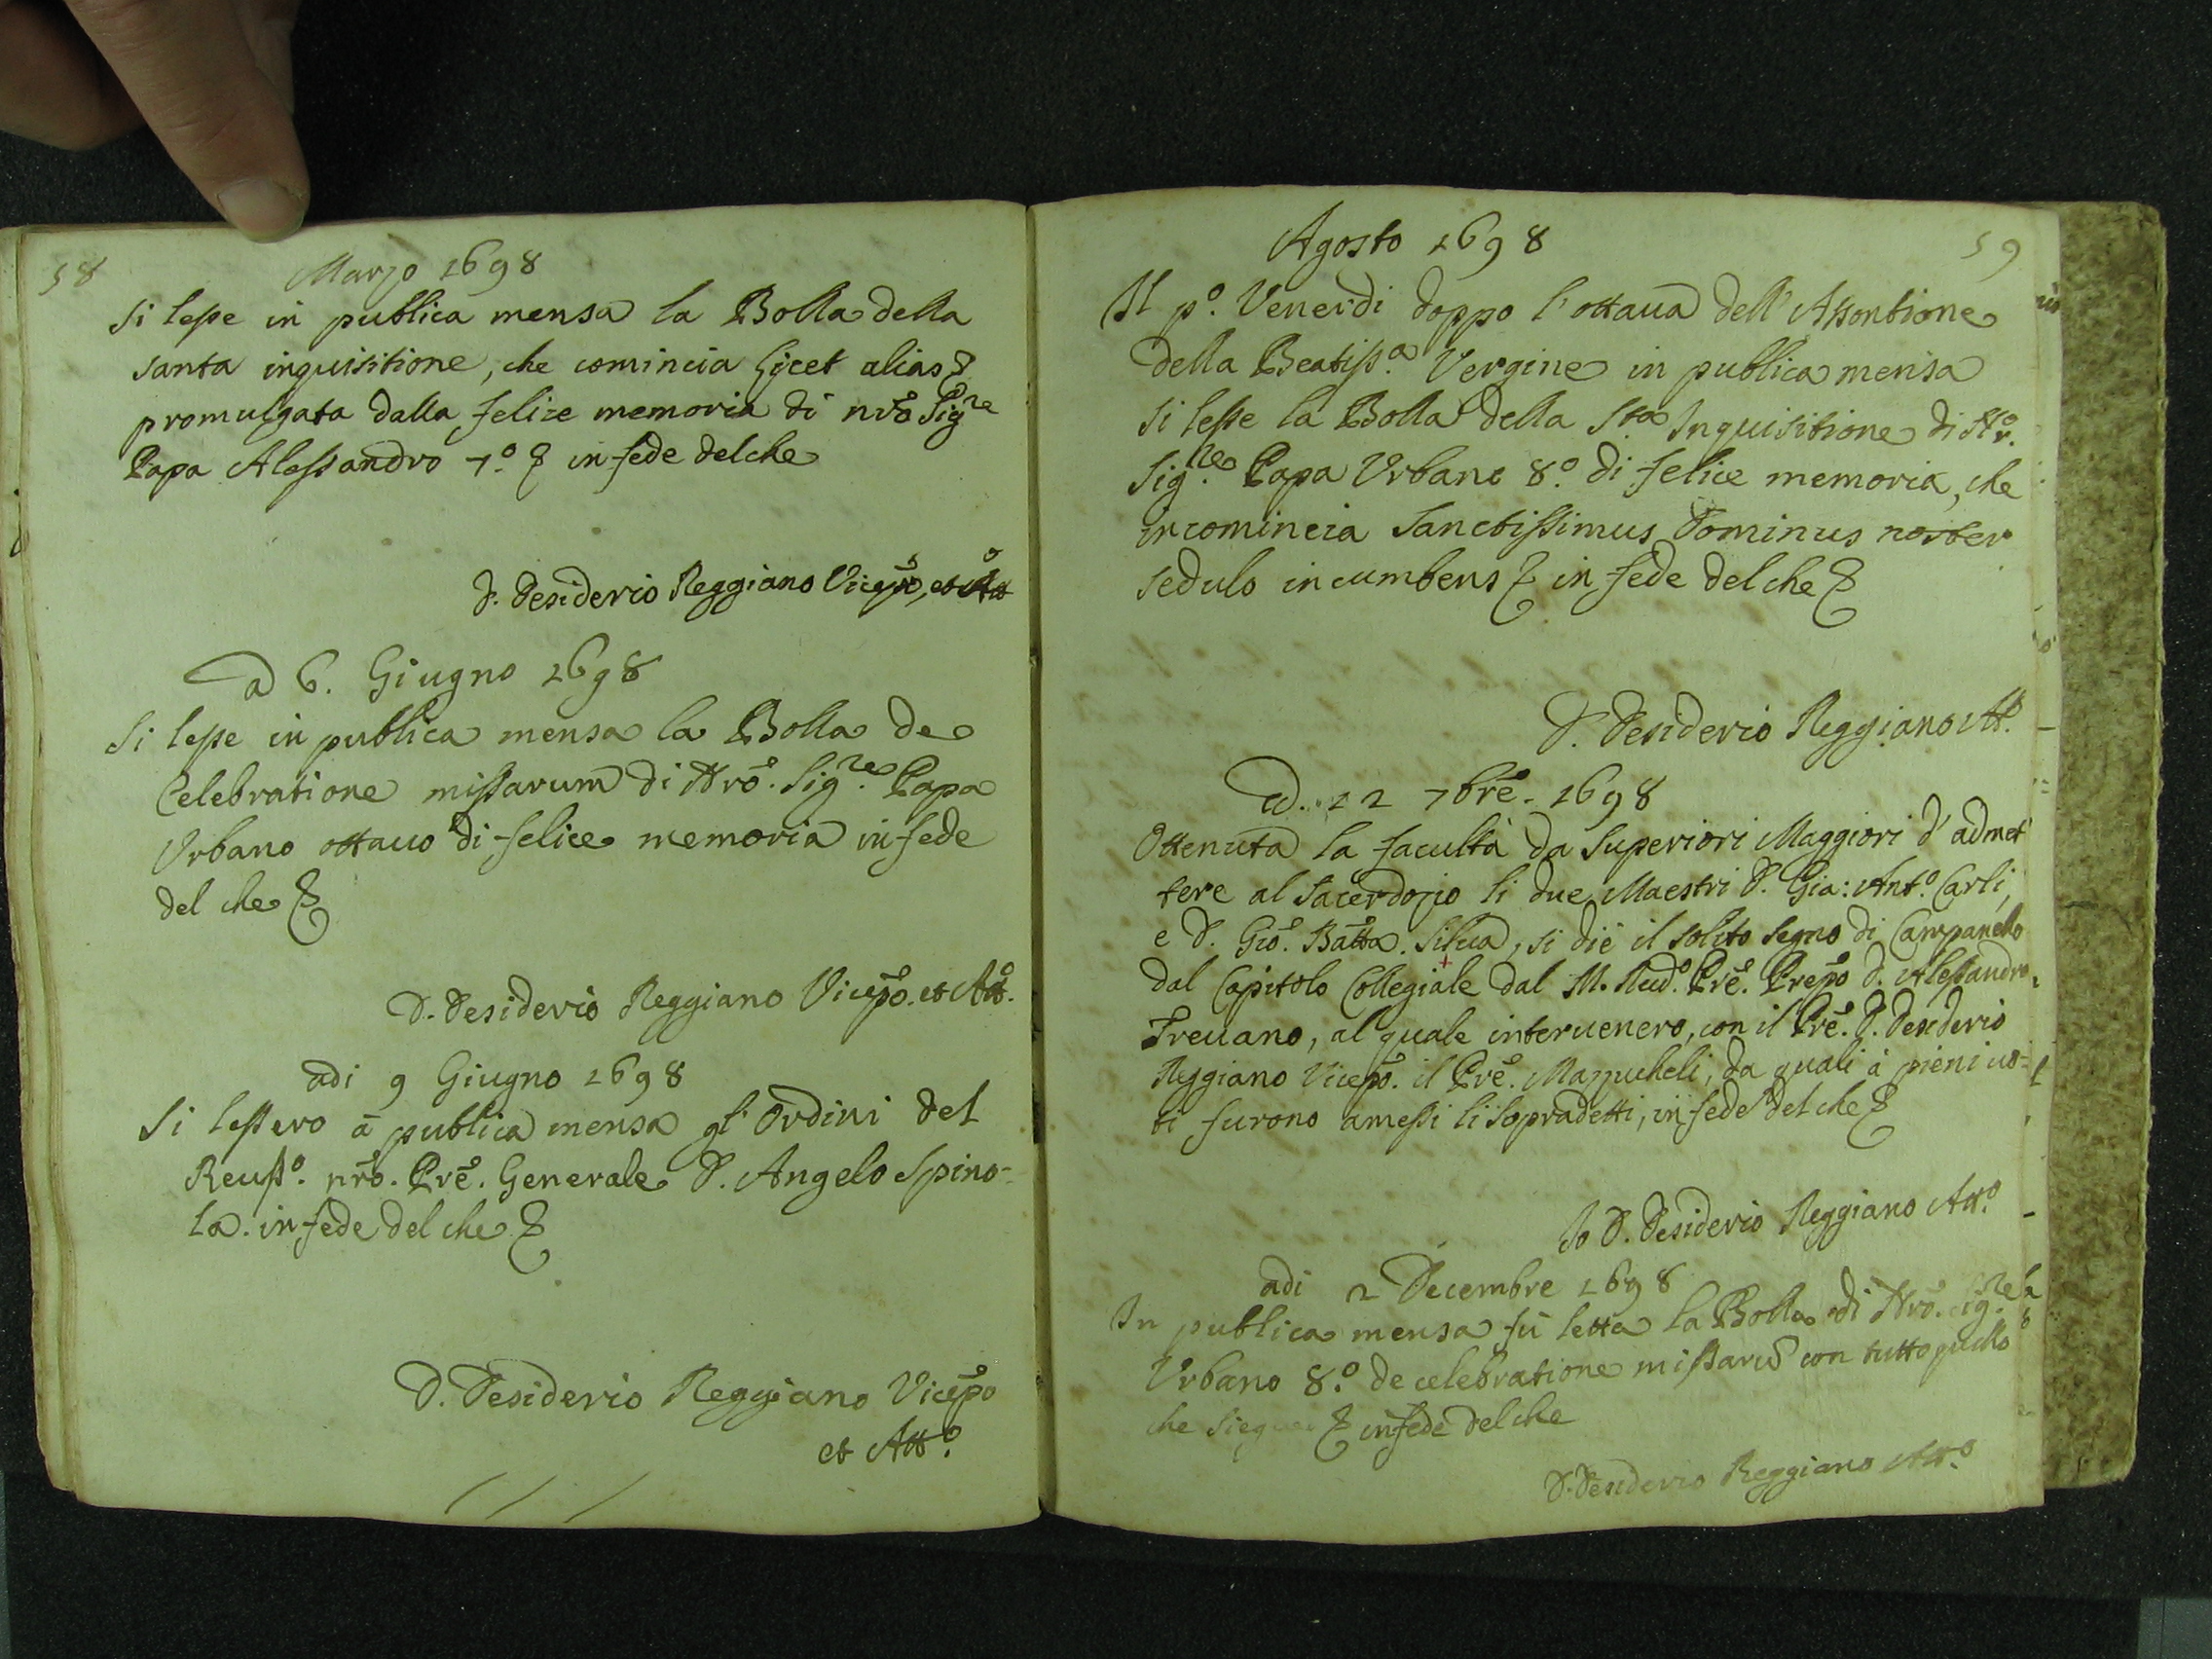 58
Marzo 1698
Si lesse in publica mensa la Bolla della
santa inquisitione, che comincia licet alias &
promulgata dalla felice memoria di nrõ Sigre
Papa Alessandro 7.º & in fede delche
D. Desiderio Reggiano Vicepõ, et Attº
Ad 6. Giugno 1698
Si lesse in publica mensa la Bolla de
Celebratione missarum di Nrõ. Sig.re Papa
Urbano ottauo di felice memoria in fede
del che &
D. Desiderio Reggiano Vicepõ. et Attº.
adi 9 Giugno 1698
Si lessero à publica mensa gl'Ordini del
Reuss.º nrõ. Prẽ. Generale D. Angelo Spino-
la. in fede del che &
D. Desiderio Reggiano Vicepõ
et Att.º
59
Agosto 1698
Il p.º Venerdi doppo l'ottaua dell'Assontione
della Beatiss.a Vergine in publica mensa
si lesse la Bolla della Sta Inquisitione di Nr̃.
Sig.re Papa Urbano 8.º di felice memoria, che
incomincia Sanctissimus Dominus noster
sedulo incumbens & in fede del che &
D. Desiderio Reggiano Att.º
Ad. 22 7brẽ. 1698
Ottenuta la facultà da Superiori Maggiori d'admet
tere al Sacerdozio li due Maestri D. Gia: Ant.º Carli,
e D. Giõ. Batta. Silua, si diè il solito segno di Campanello
dal Capitolo Collegiale dal M. Reud.º Prẽ. Prepõ D. Alessandro
Treuano, al quale interuenero, con il Prẽ. D. Desiderio
Reggiano Vicepõ. il Prẽ. Mazzucheli, da quali à pieni uo-
ti furono amessi li sopradetti, in fede del che &
Io D. Desiderio Reggiano Att.º
adi 2 Decembre 1698
In publica mensa fù letta la Bolla di Nrõ. Sig.re
Urbano 8.º de celebratione missarũ con tutto quello
che siegue & in fede del che
D. Desiderio Reggiano Att.º